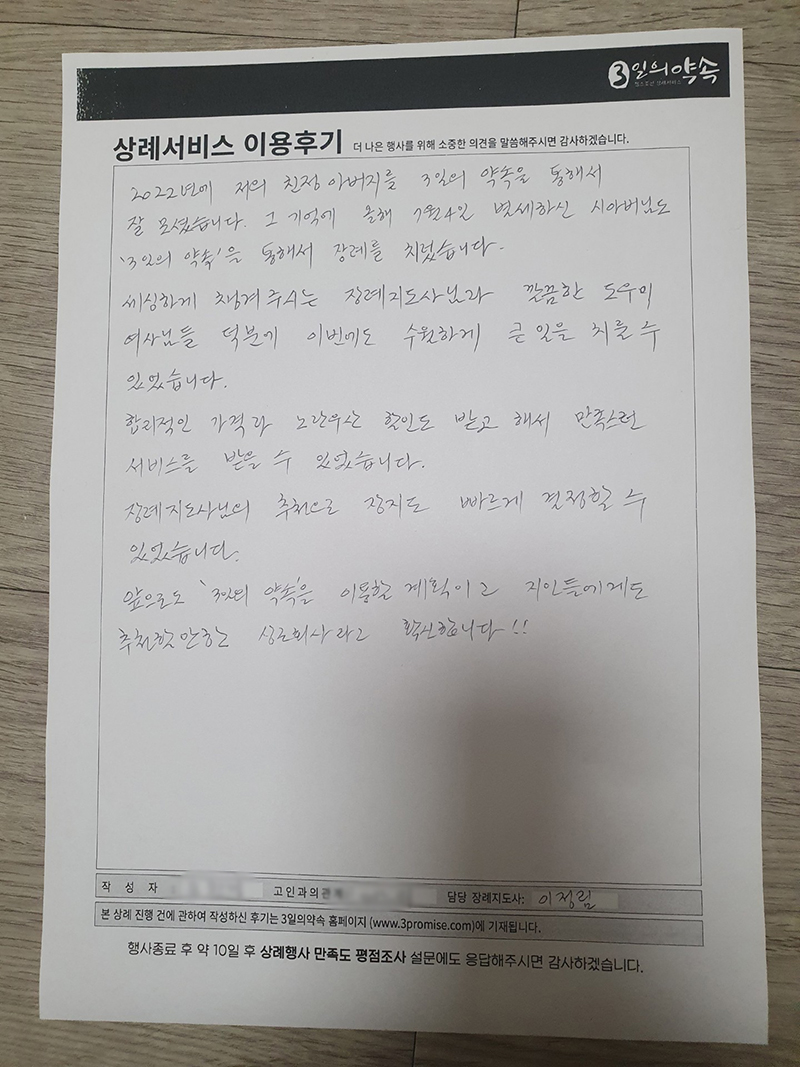 3일의약속
상례서비스 이용후기 더 나은 행사를 위해 소중한 의견을 말씀해주시면 감사하겠습니다.
2022년에 저의 친정아버지를 3일의 약속을 통해서
잘 모셨습니다. 그 기억에 올해 7월4일 별세하신 시아버님도
'3일의 약속'을 통해서 장례를 치렀습니다.
세심하게 챙겨주시는 장례지도사님과 깔끔한 도우미
여사님들 덕분에 이번에도 수월하게 큰일을 치를 수
있었습니다.
합리적인 가격과 노란우산 할인도 받고 해서 만족스런
서비스를 받을 수 있었습니다.
장례지도사님의 추천으로 장지도 빠르게 결정할 수
있었습니다.
앞으로도 '3일의 약속'을 이용할 계획이고 지인들에게도
추천할만한 상조회사라고 확신합니다!!
작 성 자 고인과의 담당 장례지도사: 이정림
본 상례 진행 건에 관하여 작성하신 후기는 3일의약속 홈페이지 (www.3promise.com)에 기재됩니다.
행사종료 후 약 10일 후 상례행사 만족도 평점조사 설문에도 응답해주시면 감사하겠습니다.